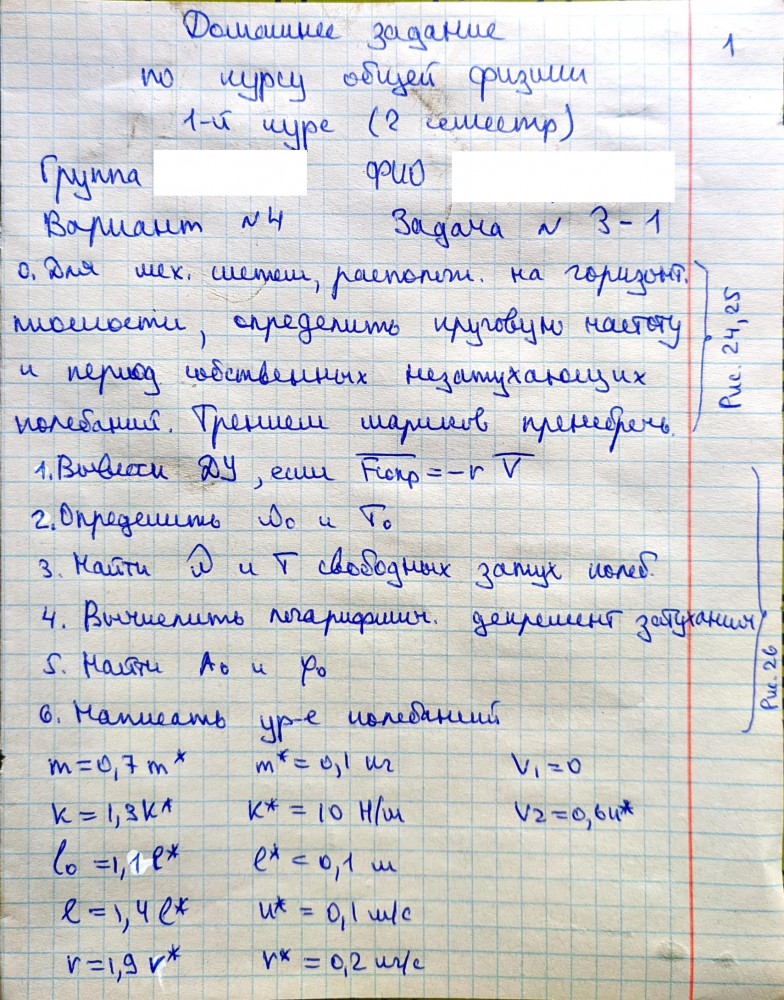 Домашнее задание
1
по курсу общей физики
1-й курс (2 семестр)
Группа ФИО
Вариант №4 Задача № 3-1
0. Для мех. систем, располож. на горизонт.
плоскости, определить круговую частоту
и период собственных незатухающих
колебаний. Трением шариков пренебречь.
Рис. 24, 25
1. Вывести ДУ, если Fсопр = -r V
2. Определить ω₀ и T₀
3. Найти ω и T свободных затух колеб.
4. Вычислить логарифмич. декремент затухания
5. Найти A₀ и φ₀
6. Написать ур-е колебаний
Рис. 26
m=0,7 m* m*=0,1 кг V₁=0
k=1,3k* k*=10 Н/м V2=0,6u*
l₀=1,1l* l*=0,1 м
l=1,4l* u*=0,1 м/с
r=1,9 r* r*=0,2 кг/с